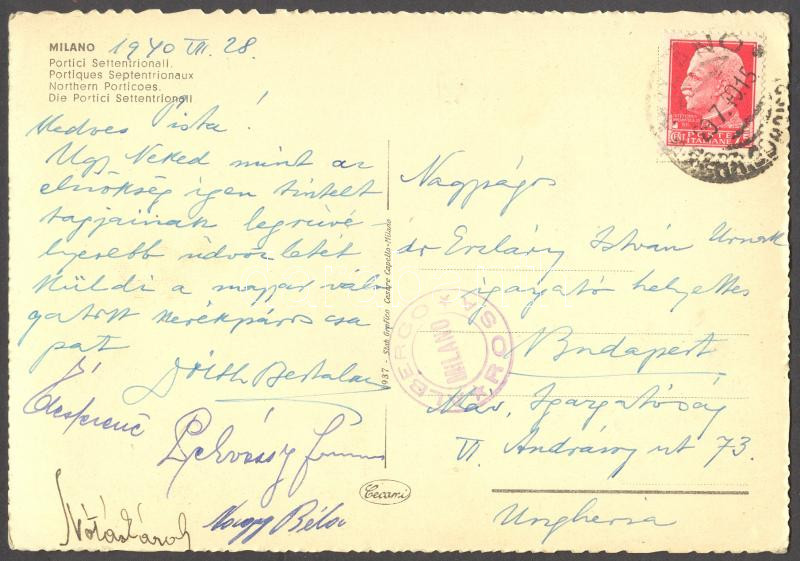 MILANO 1940 VII. 28.
Portici Settentrionali.
Portiques Septentrionaux
Northern Porticoes.
Die Portici Settentrionali
Kedves Pista!
Úgy Neked mint az
elnökség igen tisztelt
tagjainak legszívé-
lyesebb üdvözletét
küldi a magyar válo
gatott kerékpáros csa
pat
Nótás Károly
Nagy Béla
1937 - Stab. Grafico Cesare Capello - Milano
Cecami
POSTE
ITALIANE
ALBERGO ROSA
MILANO
Nagyságos
dr Erzláry István Úrnak
igazgató helyettes
Budapest
Máv. Igazgatóság
VI. Andrássy út 73.
Ungheria